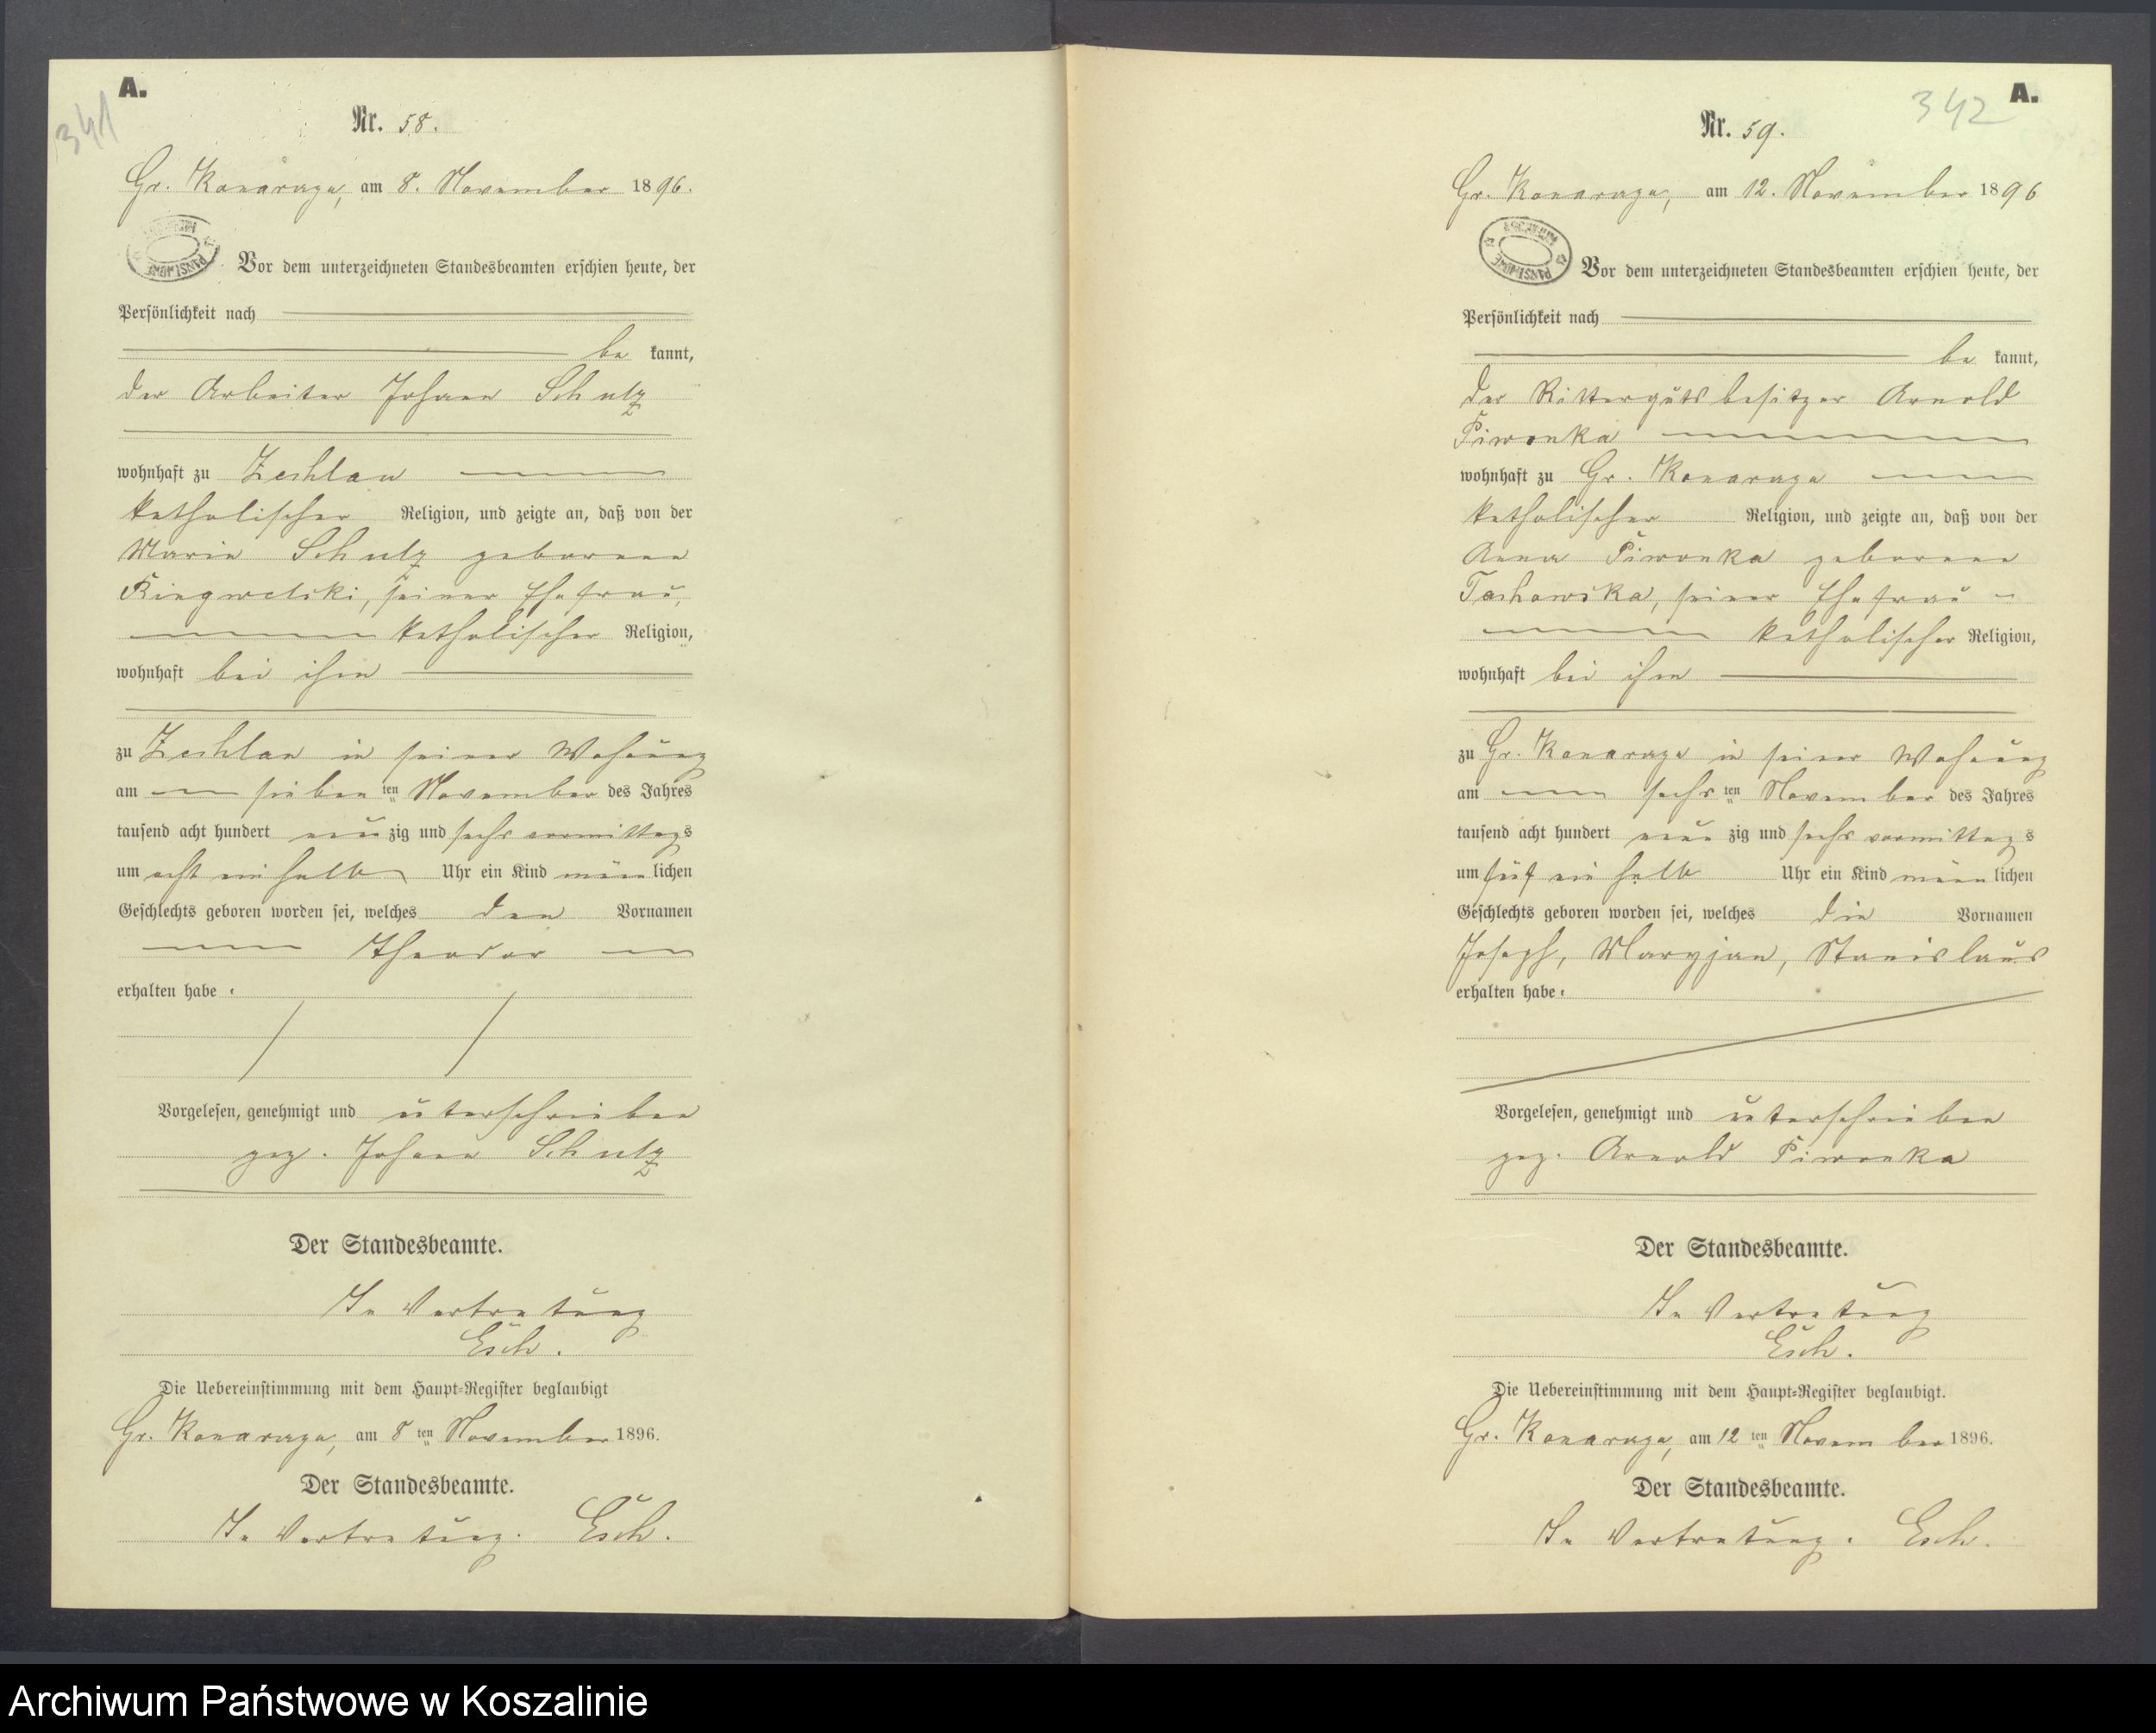 A.
341
Nr. 58.
Gr. Konarzyn, am 8. November 1896.
Vor dem unterzeichneten Standesbeamten erschien heute, der
Persönlichkeit nach
be kannt,
der Arbeiter Johann Schulz
wohnhaft zu Zechlau
katholischer Religion, und zeigte an, daß von der
Marie Schulz geborenen
seiner Ehefrau,
katholischer Religion,
wohnhaft bei ihm
zu Zechlau in seiner Wohnung
am sieben ten November des Jahres
tausend acht hundert neun zig und sechs vormittags
um acht ein halb Uhr ein Kind männ lichen
Geschlechts geboren worden sei, welches den Vornamen
Theodor
erhalten habe.
Vorgelesen, genehmigt und unterschrieben
gez. Johann Schulz
Der Standesbeamte.
In Vertretung
Esch.
Die Uebereinstimmung mit dem Haupt-Register beglaubigt
Gr. Konarzyn, am 8 ten November 1896.
Der Standesbeamte.
In Vertretung. Esch.
A.
342
Nr. 59.
Gr. Konarzyn, am 12. November 1896
ARCHIWUM PAŃSTWOWE
Vor dem unterzeichneten Standesbeamten erschien heute, der
Persönlichkeit nach
be kannt,
der Rittergutsbesitzer Arnold
Piwonka
wohnhaft zu Gr. Konarzyn
katholischer Religion, und zeigte an, daß von der
Anna Piwonka geborenen
seiner Ehefrau
katholischer Religion,
wohnhaft bei ihm
zu Gr. Konarzyn in seiner Wohnung
am sechs ten November des Jahres
tausend acht hundert neun zig und sechs vormittag s
um fünf ein halb Uhr ein Kind männ lichen
Geschlechts geboren worden sei, welches die Vornamen
Joseph, Maryjan, Stanislaus
erhalten habe.
Vorgelesen, genehmigt und unterschrieben
gez. Arnold Piwonka
Der Standesbeamte.
In Vertretung
Esch.
Die Uebereinstimmung mit dem Haupt-Register beglaubigt.
Gr. Konarzyn, am 12 ten November 1896.
Der Standesbeamte.
In Vertretung. Esch.
Archiwum Państwowe w Koszalinie